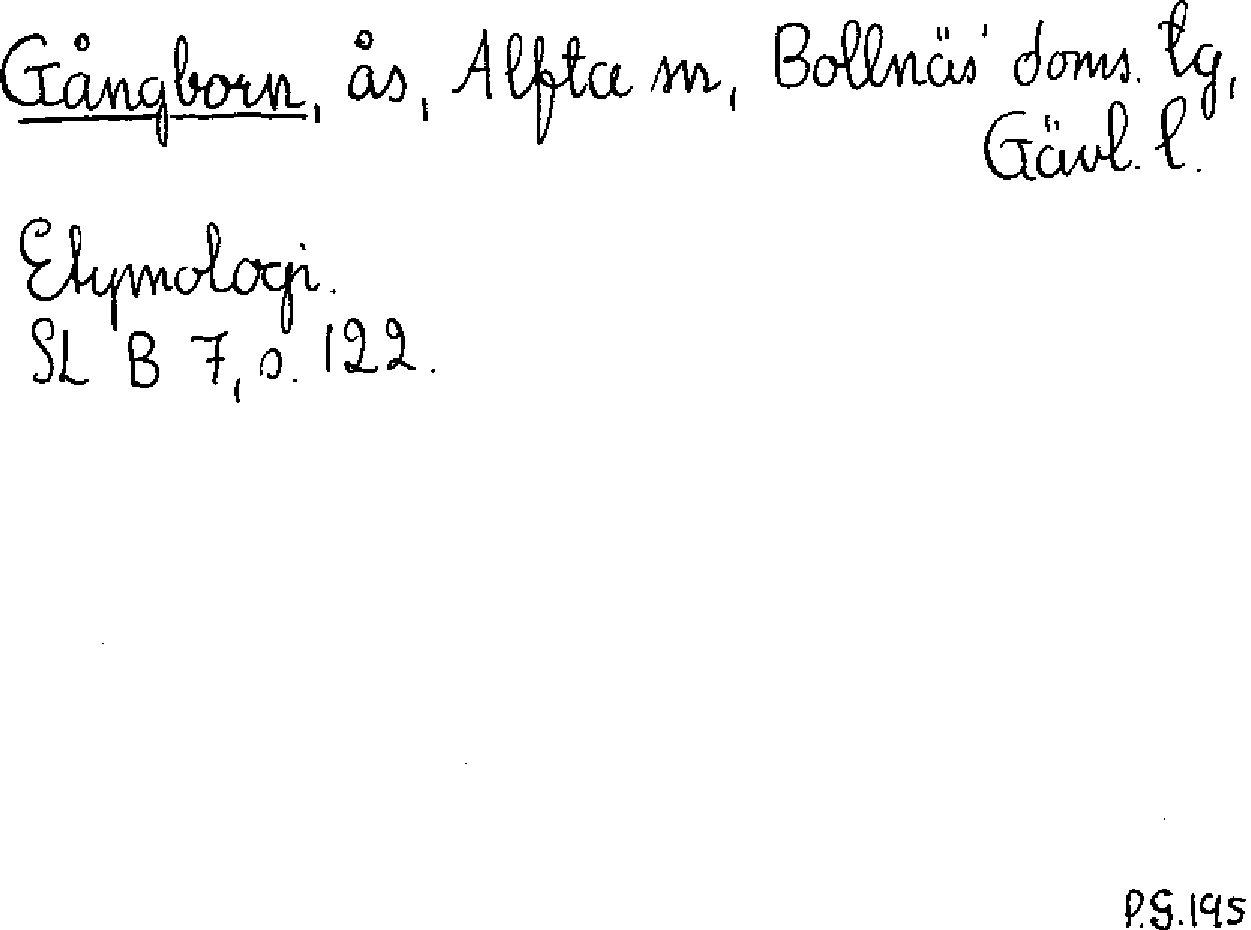 Gångborn, ås, Alfta sn, Bollnäs' doms. lg,
Gävl. l.
Etymologi.
SL B 7, s. 122.
P.G.195